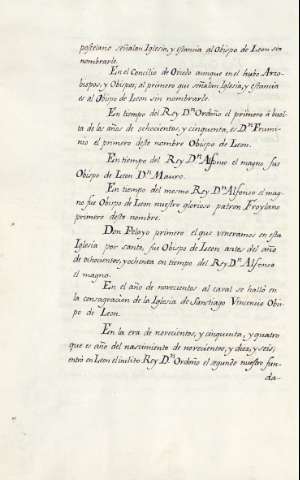 postelano señalan Iglesia, y estancia al Obispo de Leon sin
nombrarle.
En el Concilio de Oviedo aunque en el hubo Arzo-
bispos, y Obispos; al primero que señalan Iglesia, y estancia
es al Obispo de Leon sin nombrarle.
En tiempo del Rey Dⁿ Ordoño el primero á buel-
ta de los años de ochocientos, y cinquenta, es Dⁿ Frumi-
nio el primero deste nombre Obispo de Leon.
En tiempo del Rey Dⁿ Alfonso el magno fue
Obispo de Leon Dⁿ Mauro.
En tiempo del mesmo Rey Dⁿ Alfonso el mag-
no fue Obispo de Leon nuestro glorioso patron Froylano
primero deste nombre.
Don Pelayo primero el que veneramos en esta
Iglesia por santo, fue Obispo de Leon antes del año
de ochocientos, y ochenta en tiempo del Rey Dⁿ Alfonso
el magno.
En el año de novecientos al caval se halló en
la consagracion de la Iglesia de Santiago Vincencio Obis-
po de Leon.
En la era de novecientos, y cinquenta, y quatro
que es año del nascimiento de novecientos, y diez, y seis,
entró en Leon el inclito Rey Dⁿ Ordoño el segundo nuestro fun-
da-